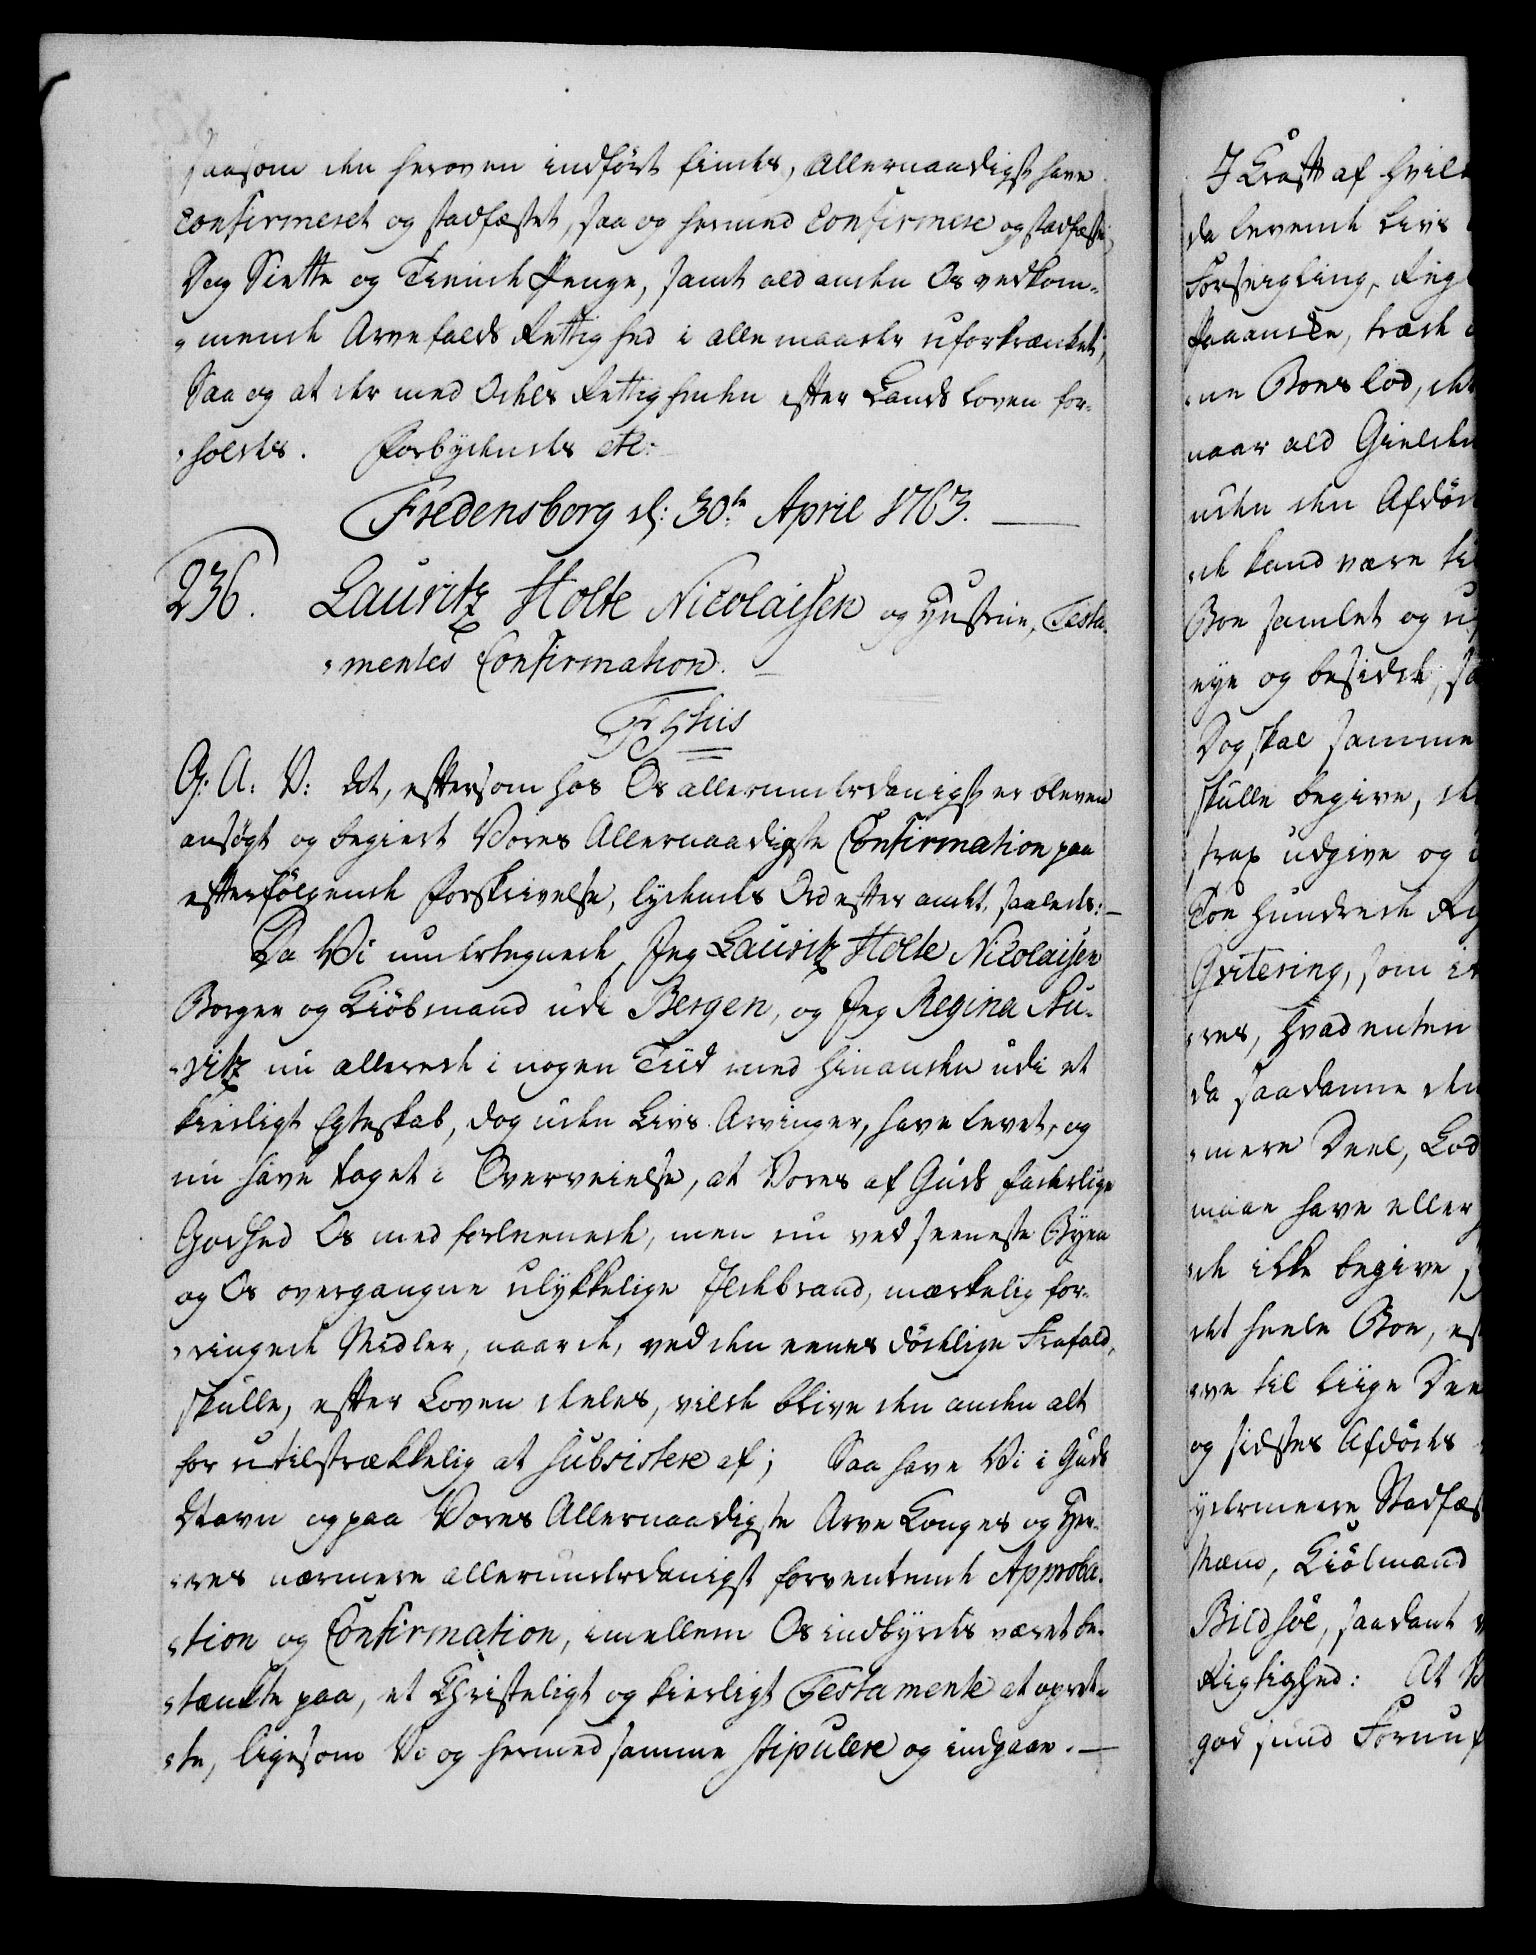 saasom den heroven indført findes, Allernaadigst have
confirmeret og stadfæstet, saa og hermed confirmere og stadfæste,
Dog Siette og Tiende Penge, samt ald anden Os vedkom-
mende Arvefalds Rettighed i alle maader uforkrænket,
Saa og at der med Odels Rettigheden efter Lands Loven for-
holdes. Forbydendes etc:
Fredensborg d: 30te April 1763.
236. Lauritz Holte Nicolaisen og Hustrue, Testa-
mentes Confirmation.
F 5this
G: A: V: det, eftersom hos Os allerunderdanigst er bleven
ansøgt og begiert Vores Allernaadigste Confirmation paa
efterfølgende forskrivelse, lydendes Ord efter andet saaledes:
Da Vi undertegnede, Jeg Lauritz Holte Nicolaisen
Borger og Kiöbmand udi Bergen, og Jeg Regina Au-
ritz nu allerede i nogen Tiid med hinanden udi et
kierligt Egteskab, dog uden Livs Arvinger, have levet, og
nu have taget i Overveielse, at Vores af Guds faderlige
Godhed Os med forleenede, men nu ved seeneste Byen
og Os overgangne ulykkelige Ildebrand, mærkelig for-
ringede Midler, naar de, ved den eenes dödelige Frafald,
skulle, efter Loven deeles, vilde blive den anden alt
for utilstrækkelig at subsistere af; Saa have Vi i Guds
Navn og paa Vores Allernaadigste Arve Konges og Her-
res nærmere allerunderdanigst forventende Approba-
tion og Confirmation, imellem Os indbyrdes været be-
tænkte paa, et Christeligt og kierligt Testamente at opret-
te, ligesom Vi og hermed samme stipulere og indgaae.
I Kraft af hvilk
da levende Livs
Forseigling,
paaanke, træde
ne Boes lod, det
naar ald Gielden
uden den Afdøde
de kand være til
Boe samlet og u
eye og besidde, sa
Dog skal samme
skulle begive, da
strax udgive og
Toe hundrede
Qvitering, som
res, hvad enten
da saadanne den
mere Deel, Lod
maae have eller
de ikke begive
det heele Boe, ef
ve til liige Dee
og sidstes Afdöds
ydermeere Stadfæs
Mænd, Kiöbmand
Bildsöe, saadant
Rigtighed: At V
god sund Fornuf